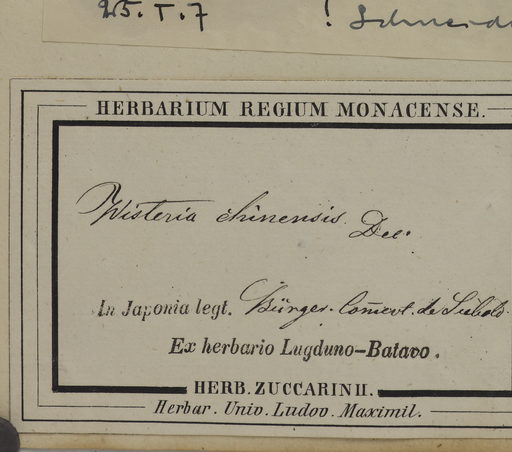 25. I. 7 !
HERBARIUM REGIUM MONACENSE.
Wisteria chinensis. Dec.
In Japonia legt. Bürger. Com̄ert. de Siebold.
Ex herbario Lugduno–Batavo.
HERB. ZUCCARINII.
Herbar. Univ. Ludov. Maximil.